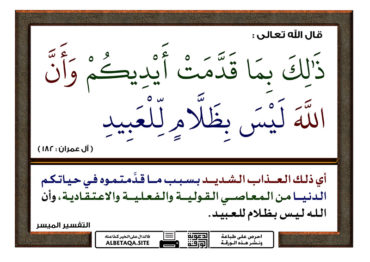 قال الله تعالى :
ذَٰلِكَ بِمَا قَدَّمَتْ أَيْدِيكُمْ وَأَنَّ
اللَّهَ لَيْسَ بِظَلَّامٍ لِّلْعَبِيدِ
( آل عمران : ١٨٢ )
أي ذلك العـذاب الشديـد بسبب ما قدَّمتموه في حياتكم
الدنيا من المعاصي القولية والفعلية والاعتقادية، وأن
الله ليس بظلام للعبيد.
التفسير الميسر
احرص على طباعة
ونشر هذه الورقة
فالدال على الخير كفاعله
ALBETAQA.SITE